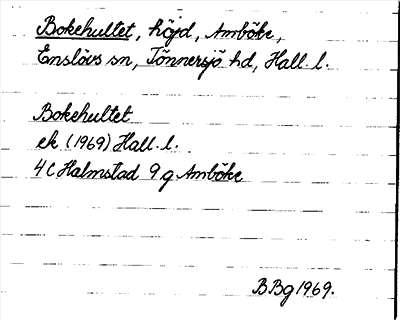 Bokehultet, höjd, Amböke,
Enslövs sn, Tönnersjö hd, Hall. l.
Bokehultet
ek (1969) Hall. l.
4C Halmstad 9g Amböke
BBg 1969.